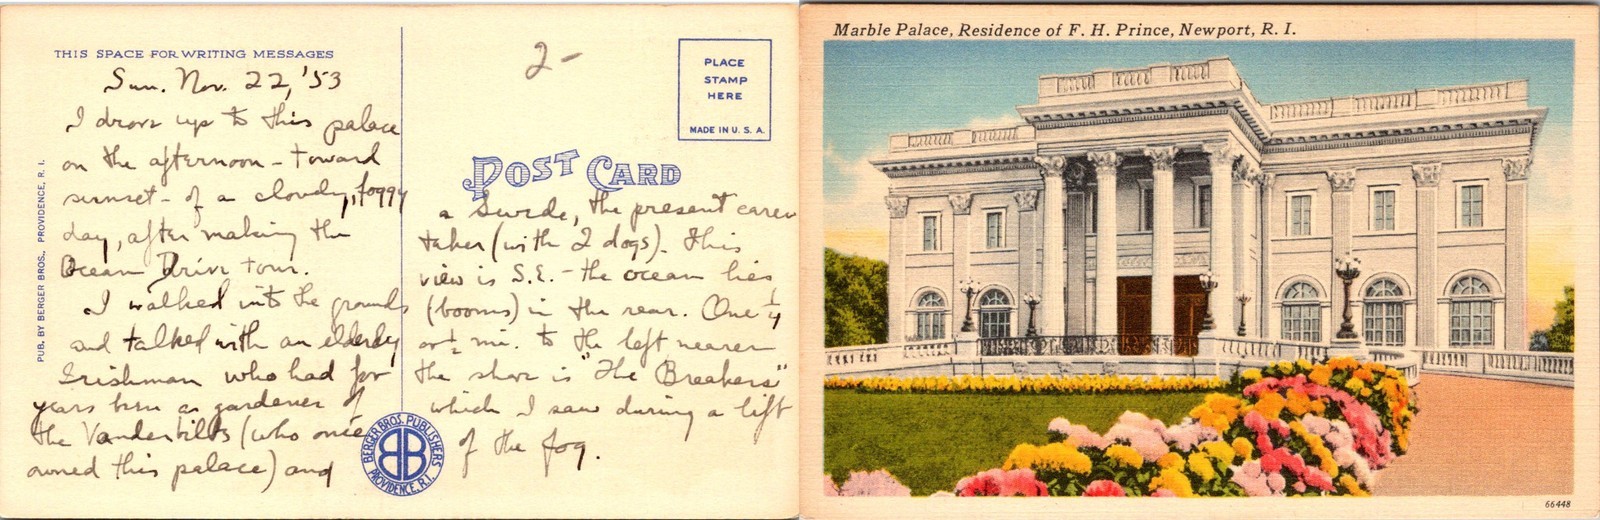 THIS SPACE FOR WRITING MESSAGES
Sun. Nov. 22, '53
I drove up to this palace
on the afternoon - toward
sunset - of a cloudy, foggy
day, after making the
Ocean Drive tour.
I walked into the grounds
and talked with an elderly
Irishman who had for
years been a gardener of
the Vanderbilts (who once
owned this palace) and
PUB. BY BERGER BROS., PROVIDENCE, R. I.
2-
PLACE
STAMP
HERE
MADE IN U. S. A.
POST CARD
a Swede, the present care
taker (with 2 dogs). This
view is S.E. - the ocean lies
(booms) in the rear. One 1/4
or 1/2 mi. to the left nearer
the shore is "The Breakers"
which I saw during a lift
of the fog.
BERGER BROS. PUBLISHERS
BB
PROVIDENCE, R.I.
Marble Palace, Residence of F. H. Prince, Newport, R. I.
66448